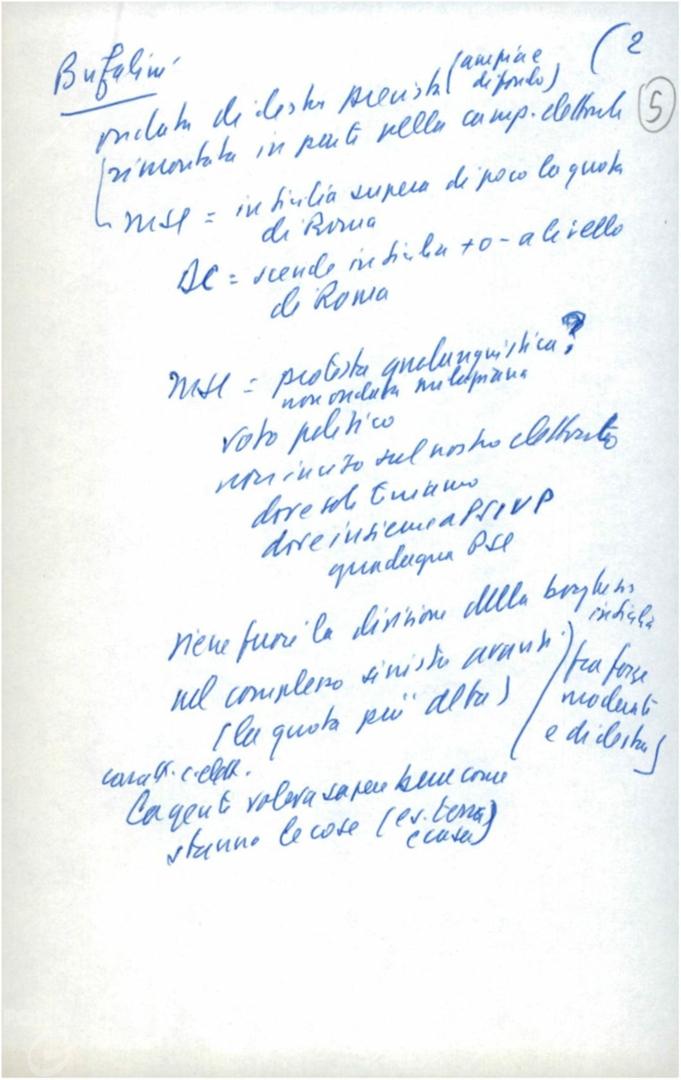 (2
5
Bufalini
ondata di destra prevista (ampia e
di fondo)
rimontata in parte nella camp. elettorale
MSI = in Sicilia supera di poco la quota
di Roma
DC = scende in Sicilia + o - a livello
di Roma
MSI = protesta qualunquistica?
non ondata milazziana
voto politico
non inciso sul nostro elettorato
dove soli teniamo
dove insieme a PSIUP
guadagna PSI
viene fuori la divisione della borghesia
in Sicilia
nel complesso sinistre avanti
(la quota più alta)
(tra forze
moderate
e di destra)
caratt. c. elett.
la gente voleva sapere bene come
stanno le cose (es. terra)
e casa)